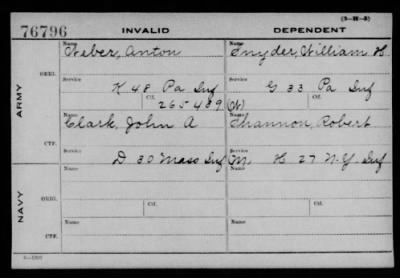 (3-H-3)
76796 INVALID DEPENDENT
ARMY
ORIG.
Name Weber, Anton
Service K 48 Pa Inf
Ctf. 265489
Name Snyder, William H.
Service G 33 Pa Inf
Ctf. (W)
CTF.
Name Clark, John A
Service D 30 Mass Inf
Name Channon, Robert
Service (M. H 27 N.Y. Inf
NAVY
ORIG.
Name
Service
Ctf.
Name
Service
Ctf.
CTF.
Name
Name